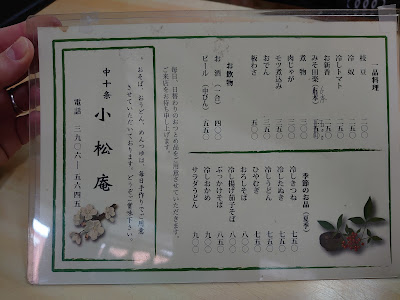 一品料理
枝豆
冷し奴
冷しトマト
お新香
みそ田楽
煮物
肉じゃが
モツ煮込み
おでん
板わさ
お飲物
お酒(一合) 四〇〇
ビール(中びん) 五五〇
季節のお品(夏季)
冷しきつね 七五〇
冷したぬき 七五〇
冷しうどん 七五〇
ひやむぎ 七五〇
おろしそば 八〇〇
冷し揚げ茄子そば
ぶっかけそば
冷しおかめ 九〇〇
サラダうどん 九〇〇
毎日、日替わりのおつとめ品をご用意させていただきます。
ご来店をお待ち申し上げます。
おそば、おうどん、めんつゆは、毎日手作りでご用意
させていただいております。どうぞご賞味下さい。
中十条
小松庵
電話 三九〇六-五六四五